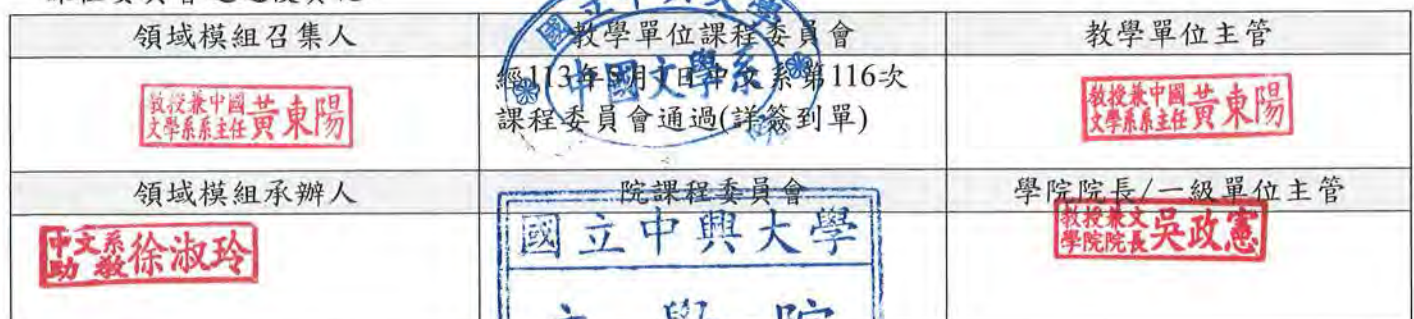 領域模組召集人
教學單位課程委員會
教學單位主管
教授兼中國
文學系系主任 黃東陽
經113年 月1日中文系第116次
課程委員會通過(詳簽到單)
國立中興大學
中國文學系
教授兼中國
文學系系主任 黃東陽
領域模組承辦人
院課程委員會
學院院長/一級單位主管
中文系
助教 徐淑玲
國立中興大學
文學院
教授兼文
學院院長 吳政憲